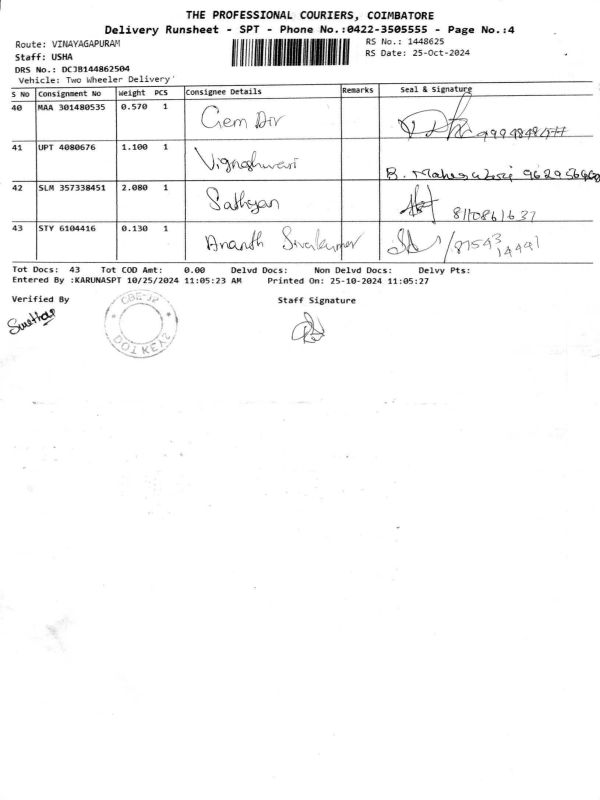 THE PROFESSIONAL COURIERS, COIMBATORE
Delivery Runsheet - SPT - Phone No.:0422-3505555 - Page No.:4
Route: VINAYAGAPURAM
RS No.: 1448625
Staff: USHA
RS Date: 25-Oct-2024
DRS No.: DCJB144862504
Vehicle: Two Wheeler Delivery
S No Consignment No Weight PCS Consignee Details Remarks Seal & Signature
40 MAA 301480535 0.570 1 Gem Air
41 UPT 4080676 1.100 1 Vigneshwari B. Maheswari
42 SLM 357338451 2.080 1 Sathyan 8110861637
43 STY 6104416 0.130 1 Ananth Sivakumar 87543 14491
Tot Docs: 43 Tot COD Amt: 0.00 Delvd Docs: Non Delvd Docs: Delvy Pts:
Entered By :KARUNASPT 10/25/2024 11:05:23 AM Printed On: 25-10-2024 11:05:27
Verified By Staff Signature